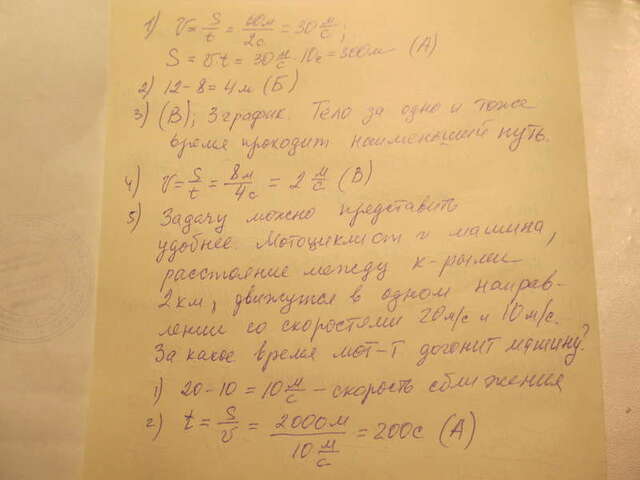 1) v = S/t = 60м/2с = 30 м/с;
S = vt = 30 м/с · 10с = 300м (А)
2) 12 - 8 = 4 м (Б)
3) (В); 3 график. Тело за одно и тоже
время проходит наименьший путь.
4) v = S/t = 8м/4с = 2 м/с (В)
5) Задачу можно представить
удобнее. Мотоциклист и машина,
расстояние между к-рыми
2км, движутся в одном направ-
лении со скоростями 20м/с и 10м/с.
За какое время мот-т догонит машину?
1) 20 - 10 = 10 м/с - скорость сближения
2) t = S/v = 2000м/10 м/с = 200с (А)